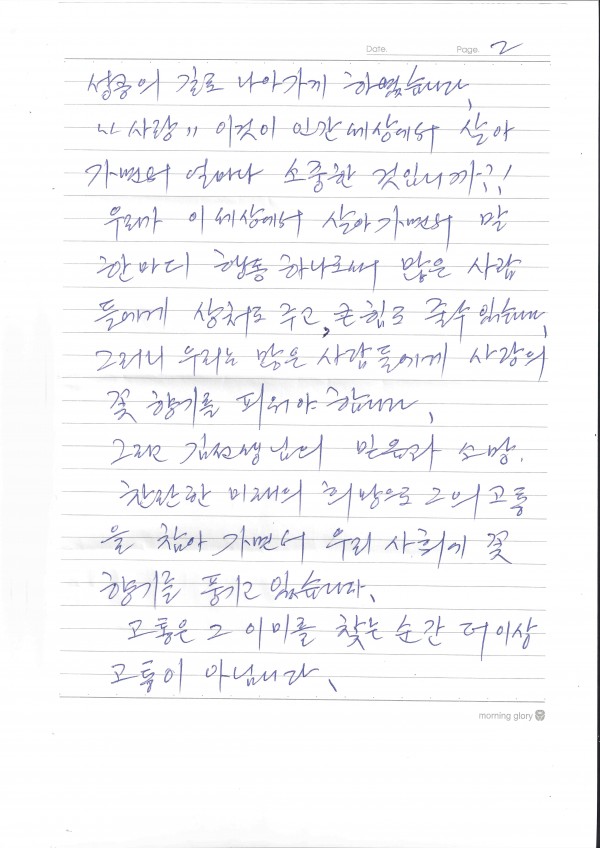 Date. Page. 2
성공의 길로 나아가게 하였습니다.
"사랑" 이것이 인간세상에서 살아
가면서 얼마나 소중한 것입니까?!
우리가 이 세상에서 살아가면서 말
한마디 행동 하나로써 많은 사람
들에게 상처도 주고, 큰 힘도 줄수 있습니다.
그러니 우리는 많은 사람들에게 사랑의
꽃 향기를 피워야 합니다.
그리고 김선생님의 믿음과 소망.
찬란한 미래의 희망으로 그의 고통
을 참아 가면서 우리 사회에 꽃
향기를 풍기고 있습니다.
고통은 그 의미를 찾는 순간 더이상
고통이 아닙니다.
morning glory